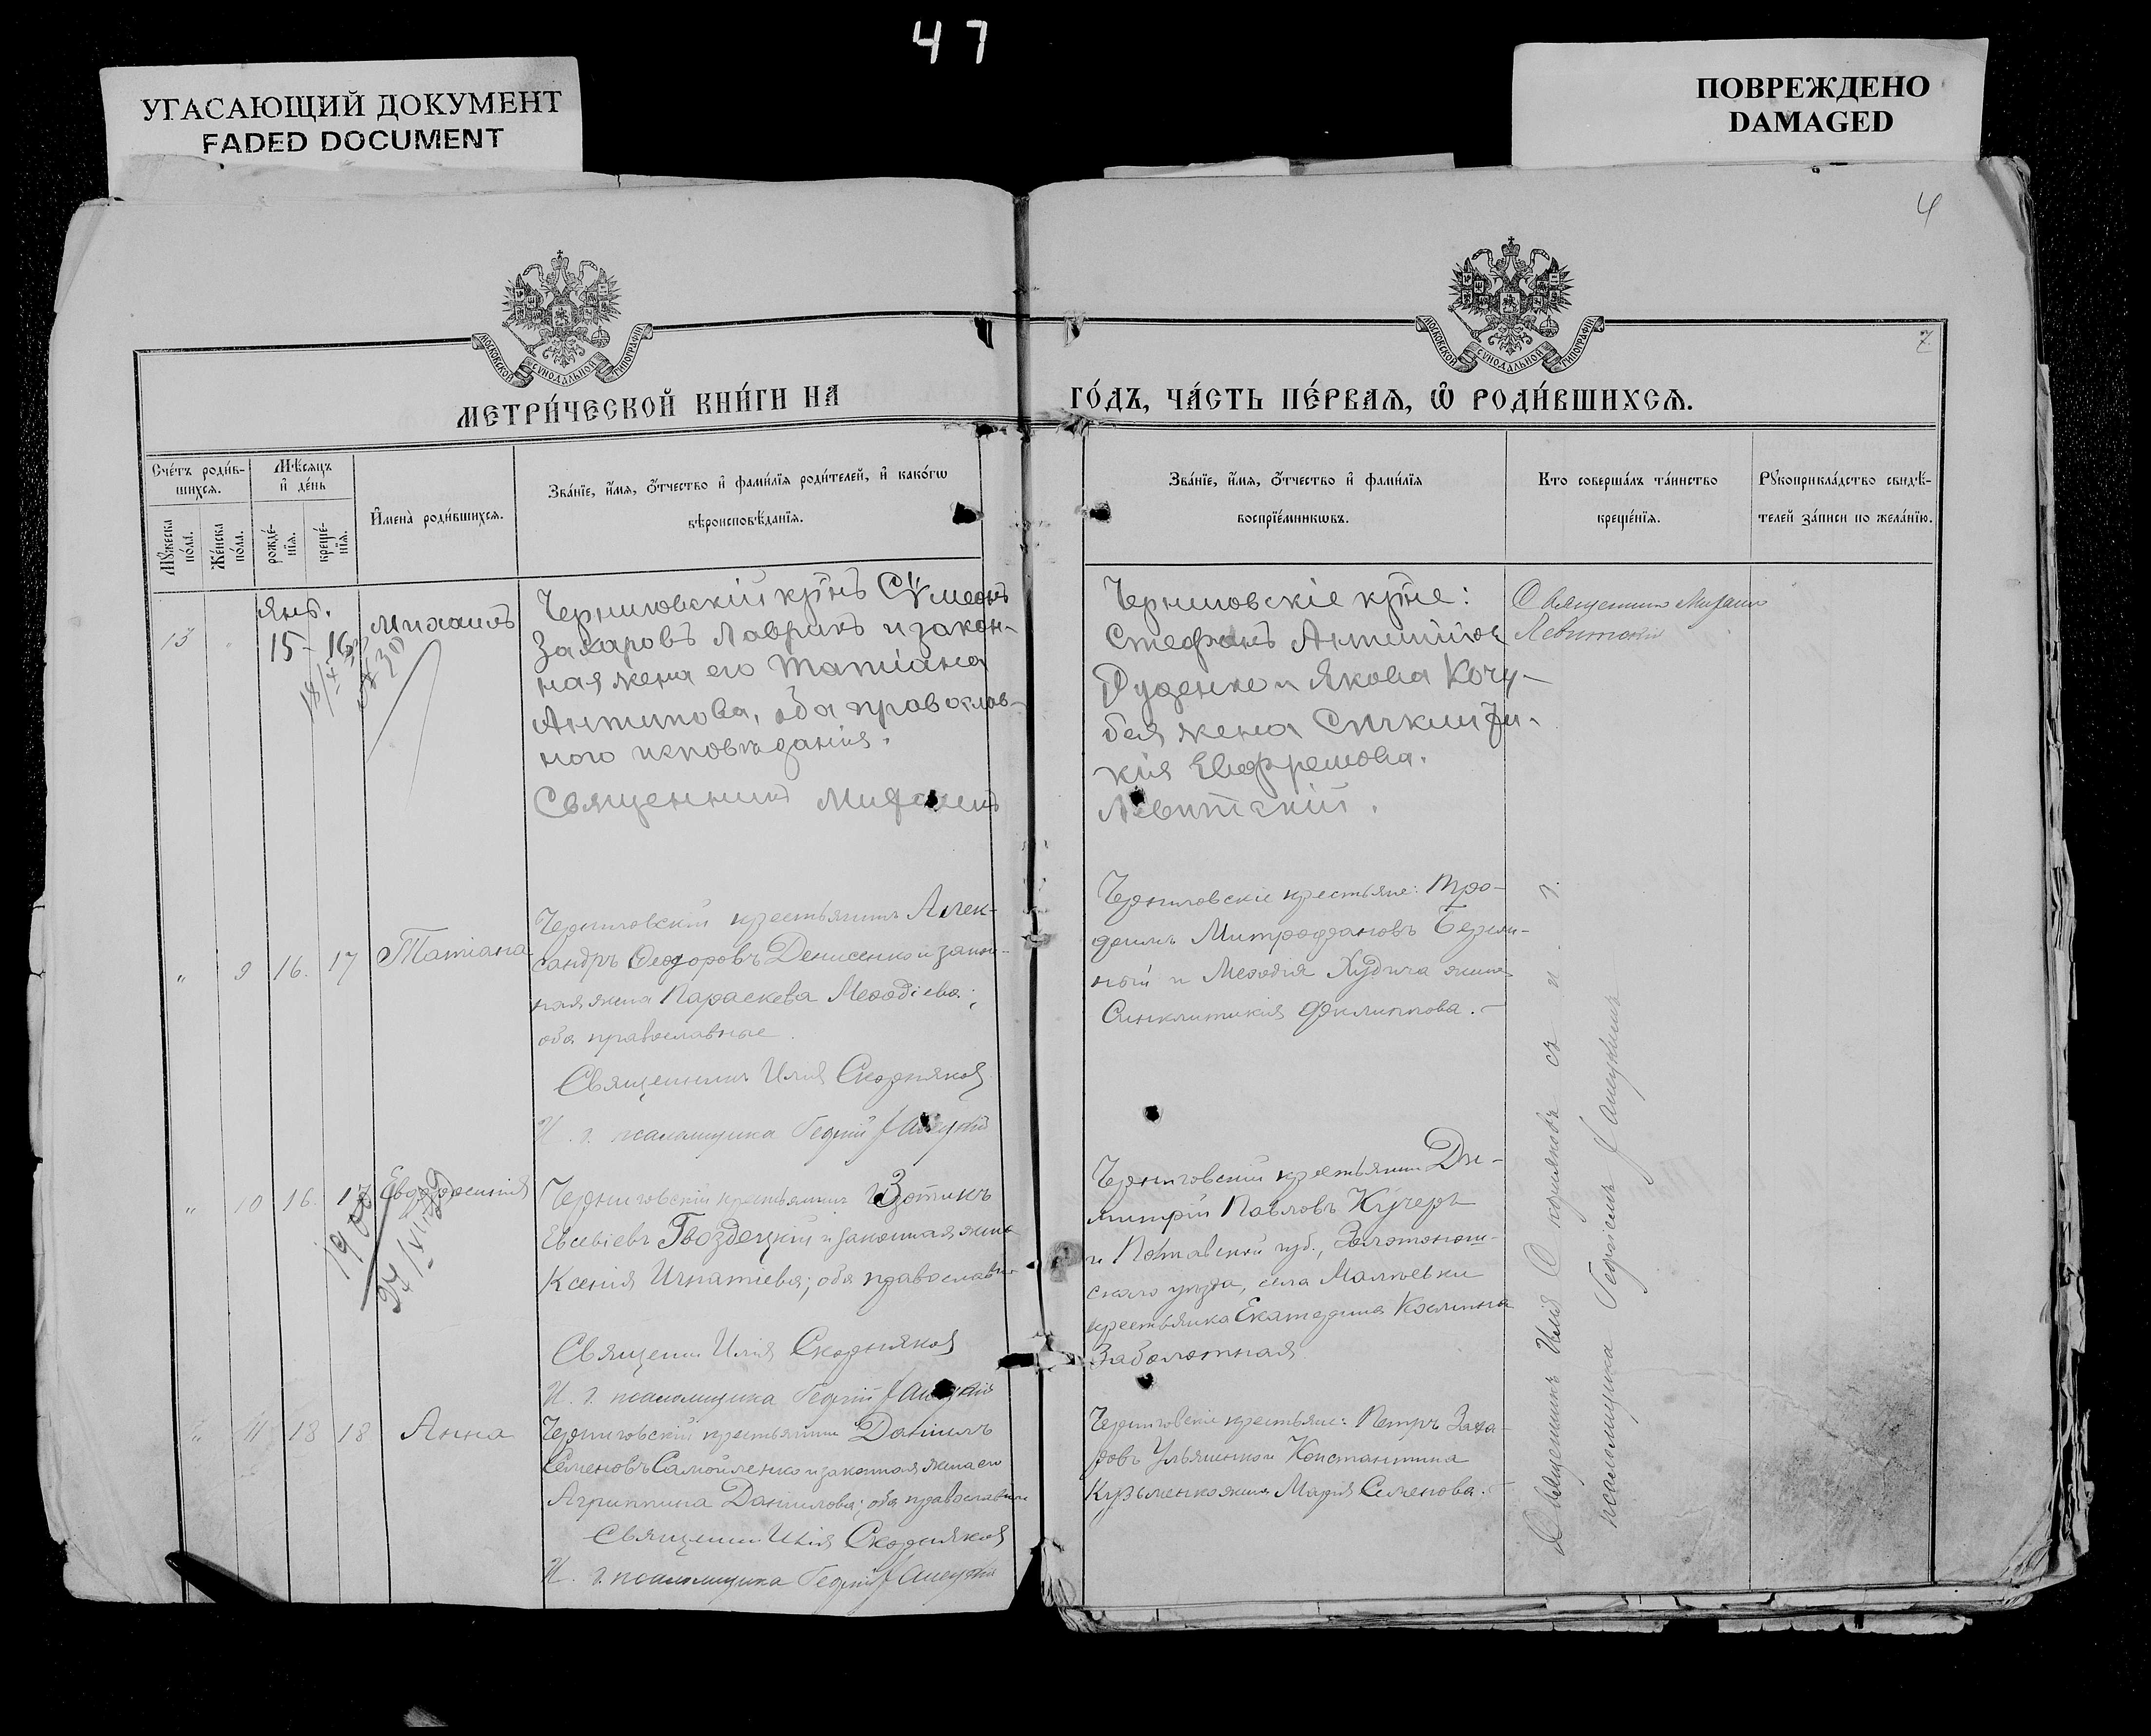 47
УГАСАЮЩИЙ ДОКУМЕНТ
FADED DOCUMENT
ПОВРЕЖДЕНО
DAMAGED
4
МОСКОВСКОЙ СѴНОДАЛЬНОЙ ТИПОГРАФІИ
МОСКОВСКОЙ СѴНОДАЛЬНОЙ ТИПОГРАФІИ
МЕТРИ́ЧЕСКОЙ КНИ́ГИ НА
ГО́ДЪ, ЧА́СТЬ ПЕ́РВАѦ, Ѡ҆ РОДИ́ВШИХСѦ.
Сче́тъ роди́в-
шихсѧ.
Мѣ́сѧцъ
и҆ де́нь
Мꙋ́жеска
по́ла.
Же́нска
по́ла.
рожде́-
нїѧ.
креще́-
нїѧ.
И҆мена̀ роди́вшихсѧ.
Зва́нїе, и҆́мѧ, ѻ҆́тчество и҆ фами́лїѧ роди́телей, и҆ како́гѡ
вѣроисповѣ́данїѧ.
Зва́нїе, и҆́мѧ, ѻ҆́тчество и҆ фами́лїѧ
воспрїе́мникѡвъ.
Кто̀ соверша́лъ та́инство
креще́нїѧ.
Рꙋкоприкла́дство свидѣ́-
телей за́писи по жела́нїю.
Янв.
13 " 15 - 16 Михаилъ
Черниговскій кр̃нъ Сѵмеонъ
Захаровъ Лаврикъ и закон-
ная жена его Татіана
Антипова, оба православ-
ного исповѣданія.
Священникъ Михаилъ
Черниговскіе кр̃не:
Стефанъ
Руденко и Якова Кочу-
бея жена
кія Евфремова.
Левитскій.
Священникъ Михаилъ
Левитскій
" 9 16. 17 Татіана
Черниговскій крестьянинъ Алек-
сандръ Ѳеодоровъ Денисенко и закон-
ная жена Параскева Меѳодіева;
оба православные.
Священникъ Илія Скорняковъ
И. д. псаломщика Георгій
Черниговскіе крестьяне: Тро-
фимъ Митрофановъ
ный и Меѳодія Худича жена
Синклитикія Филиппова.
" 10 16. 17 Евфросинія
1908
Черниговскій крестьянинъ Зотикъ
Евсевіевъ Гвоздецкій и законная жена
Ксенія Игнатіева; оба православные
Священникъ Илія Скорняковъ
И. д. псаломщика Георгій
Черниговскій крестьянинъ Ди-
митрій Павловъ Кучеръ
и Полтавской губ., Золотонош-
скаго уѣзда, села Мальевки
крестьянка Екатерина
Заболотная
" 11 18 18 Анна
Черниговскій крестьянинъ Даніилъ
Семеновъ Самойленко и законная жена его
Агриппина Даніилова; оба православные
Священникъ Илія Скорняковъ
И. д. псаломщика Георгій
Черниговскіе крестьяне: Петръ Заха-
ровъ Ульяненко и Константина
Кузьменко жена Марія Семенова.
Священникъ Илія Скорняковъ съ и. д.
псаломщика Георгіемъ